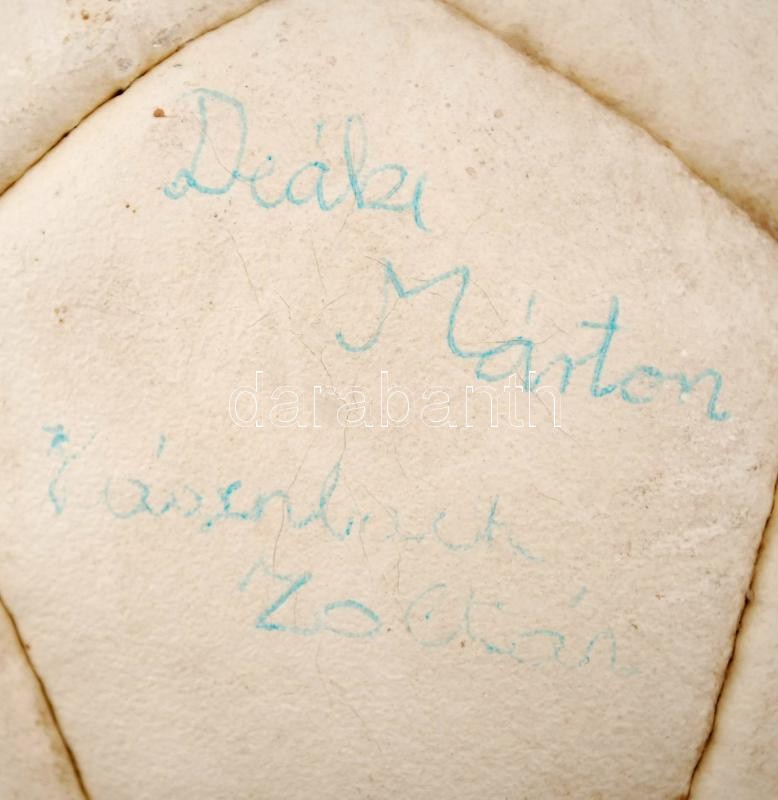 Deák
Márton
darabanth
Zoltán